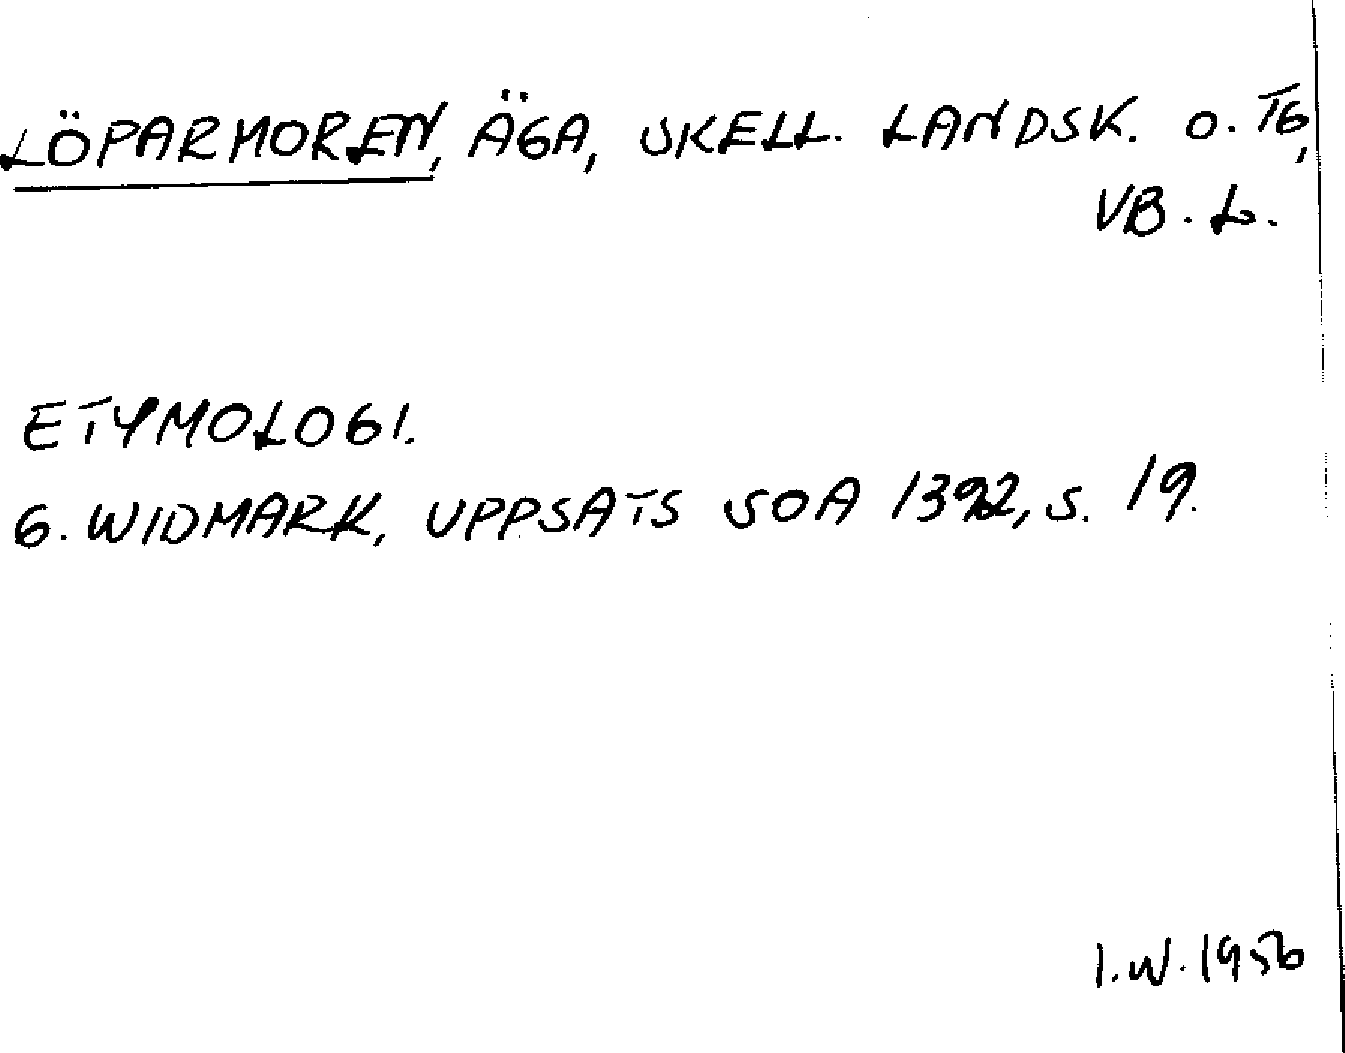 LÖPARMOREN, ÄGA, SKELL. LANDSK. O. TG,
VB. L.
ETYMOLOGI.
G. WIDMARK, UPPSATS SOA 1392, S. 19.
I.W. 1956